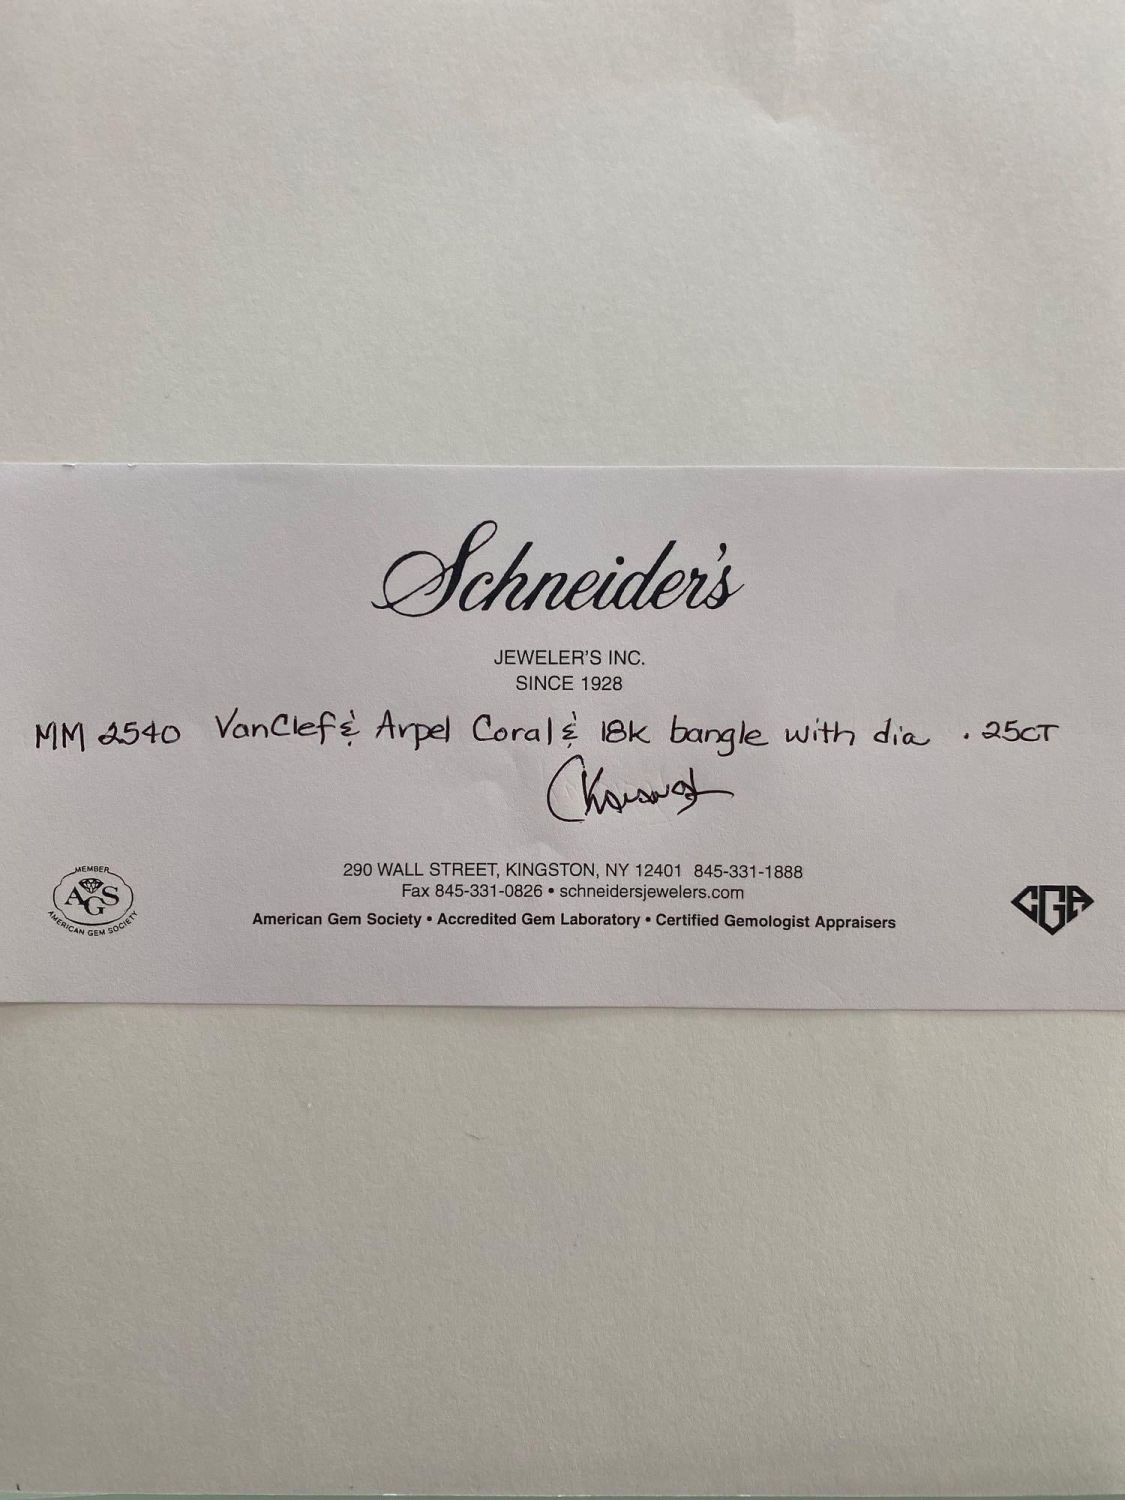 Schneider's
JEWELER'S INC.
SINCE 1928
MM 2540 VanClef & Arpel Coral & 18k bangle with dia .25CT
290 WALL STREET, KINGSTON, NY 12401 845-331-1888
Fax 845-331-0826 • schneidersjewelers.com
American Gem Society • Accredited Gem Laboratory • Certified Gemologist Appraisers
MEMBER
AGS
AMERICAN GEM SOCIETY
CGA